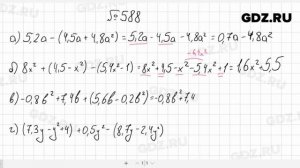 GDZ.RU
№588
а) 5,2a - (4,5a + 4,8a²) = 5,2a - 4,5a - 4,8a² = 0,7a - 4,8a²
б) 8x² + (4,5 - x²) - (5,4x² - 1) = 8x² + 4,5 - x² - 5,4x² + 1 = 1,6x² + 5,5
в) -0,8b² + 7,4b + (5,6b - 0,2b²) = -0,8b² + 7,4
г) (7,3y - y² + 4) + 0,5y² - (8,7y - 2,4y²)
GDZ.RU